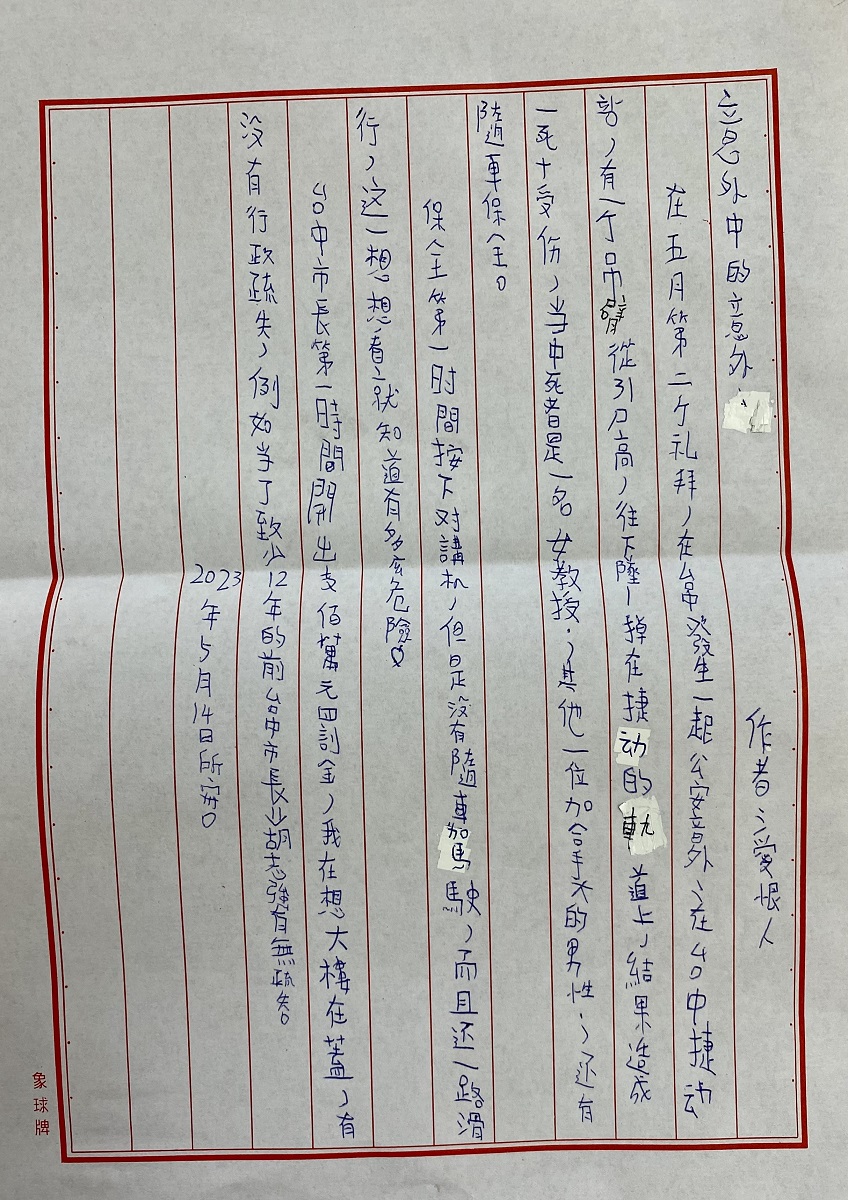 意外中的意外
作者:愛恨人
在五月第二个礼拜,在台中發生一起公安意外、在台中捷动
,有一个吊臂從31刀高,往下墜掉在捷动的軌道上,結果造成
一死十受伤,当中死者是一名女教授,其他一位加拿大的男性,还有
隨車保全。
保全第一时間按下对講机,但是没有隨車駕駛,而且还一路滑
行,这一想想看就知道有多么危險。
台中市長第一時間開出支佰萬元四罰金,我在想大樓在蓋,有
没有行政疏失,例如当了致少12年的前台中市長胡志強有無疏
2023年5月14日所寫。
象球牌